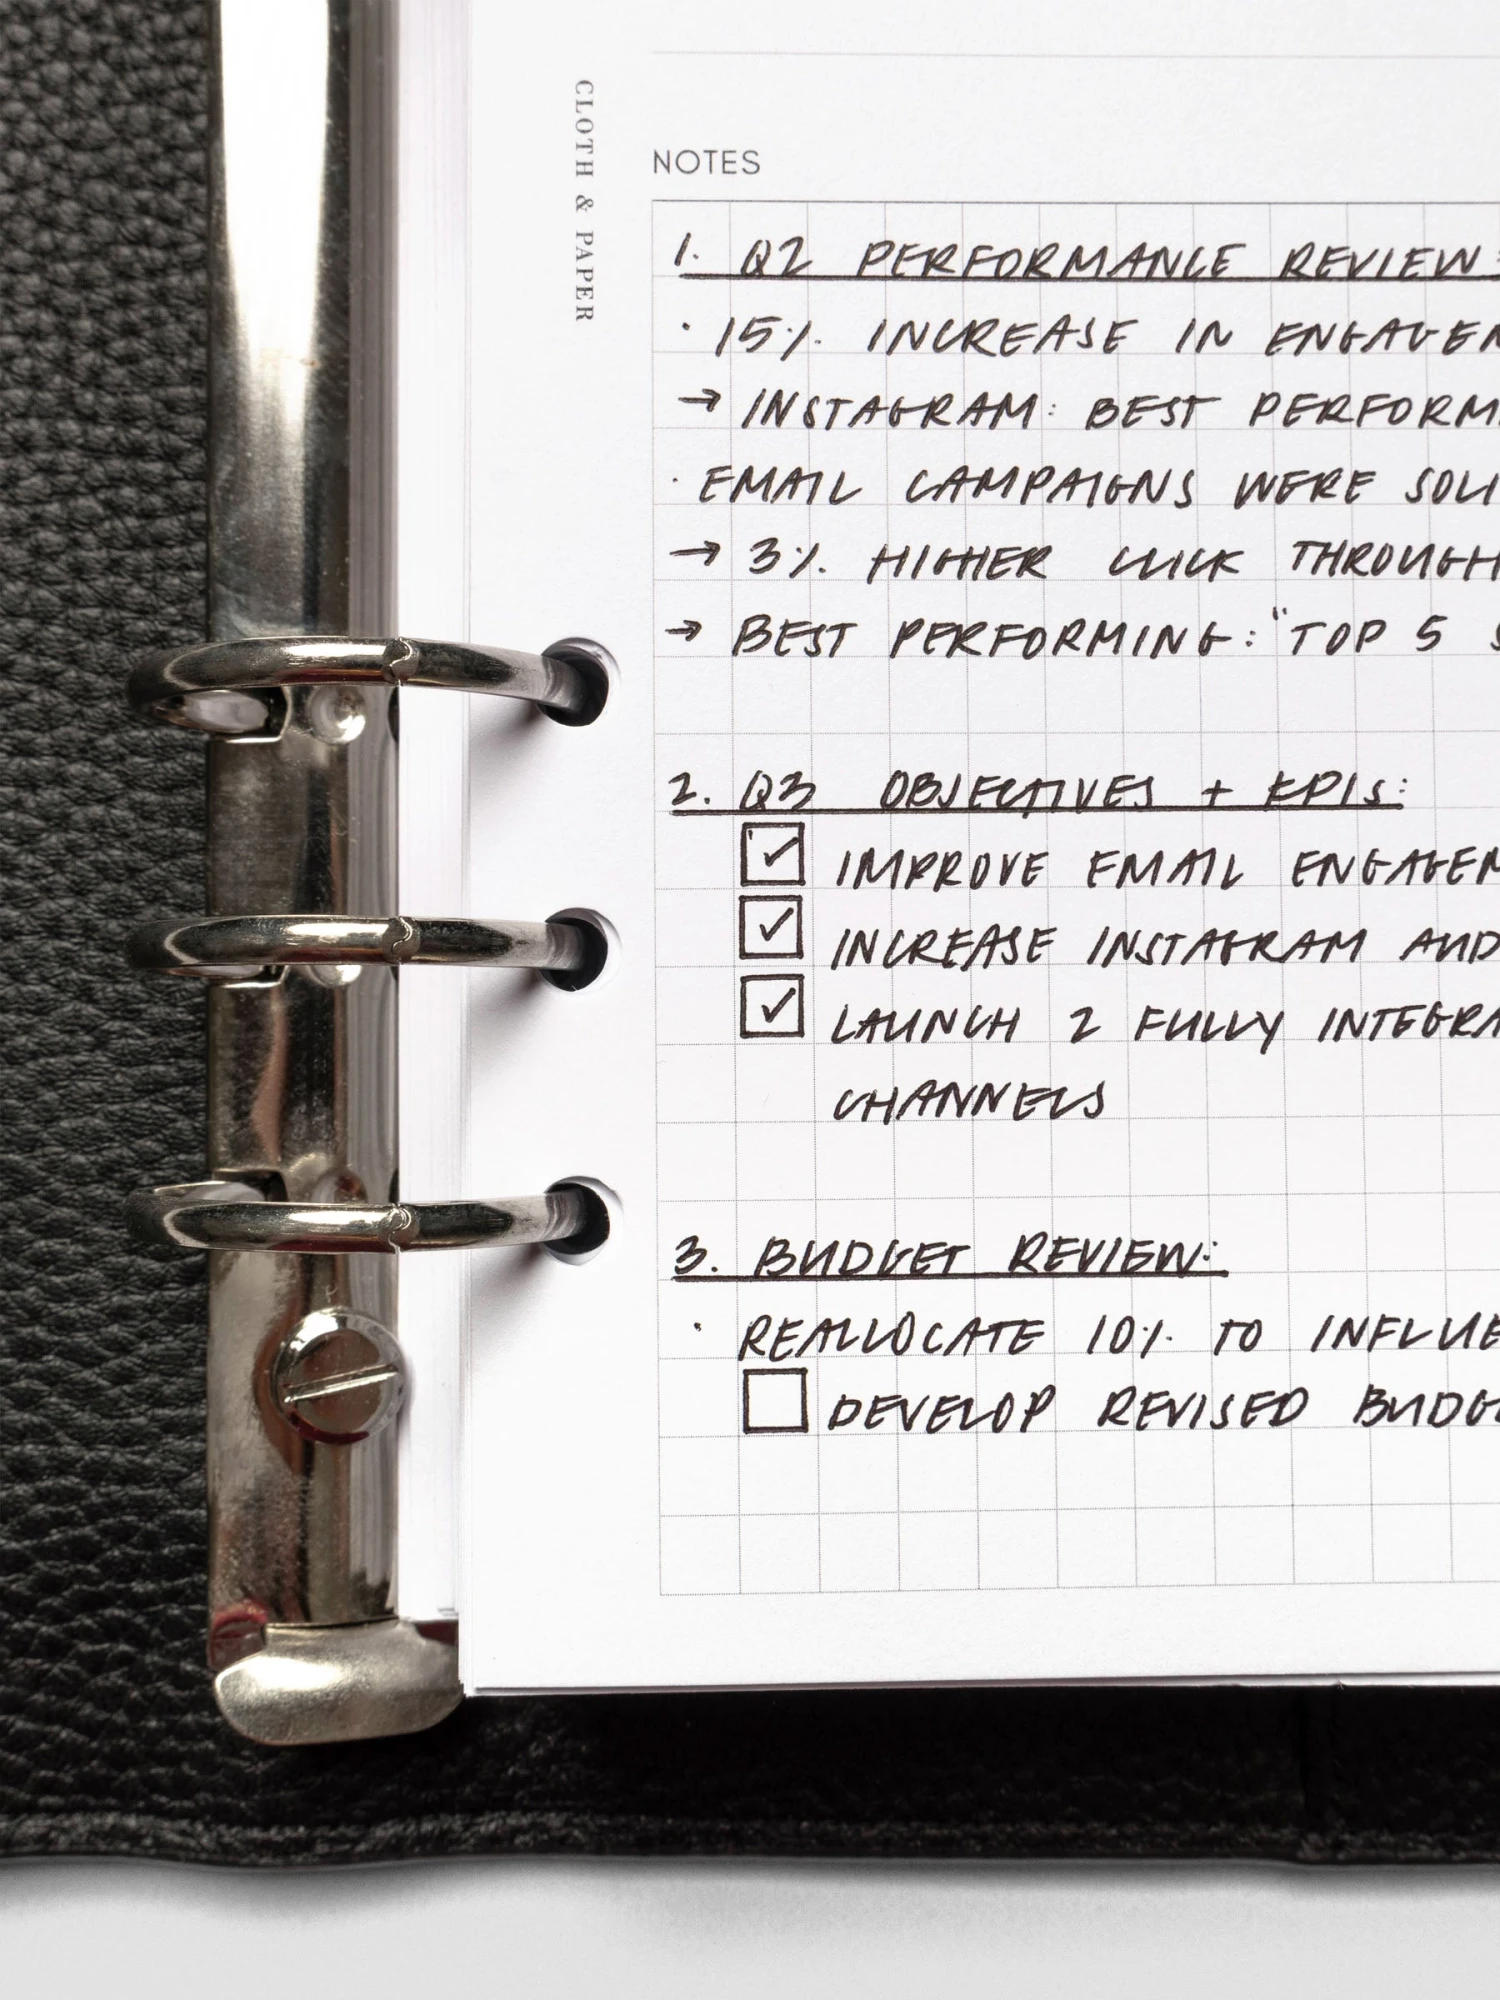 CLOTH & PAPER
NOTES
1. Q2 PERFORMANCE REVIEW:
· 15% INCREASE IN ENGAGEM
→ INSTAGRAM: BEST PERFORM
· EMAIL CAMPAIGNS WERE SOLI
→ 3% HIGHER CLICK THROUGH
→ BEST PERFORMING: "TOP 5 S
2. Q3 OBJECTIVES + KPIs:
☑ IMPROVE EMAIL ENGAGEM
☑ INCREASE INSTAGRAM AUD
☑ LAUNCH 2 FULLY INTEGRA
CHANNELS
3. BUDGET REVIEW:
· REALLOCATE 10% TO INFLUE
☐ DEVELOP REVISED BUDGE